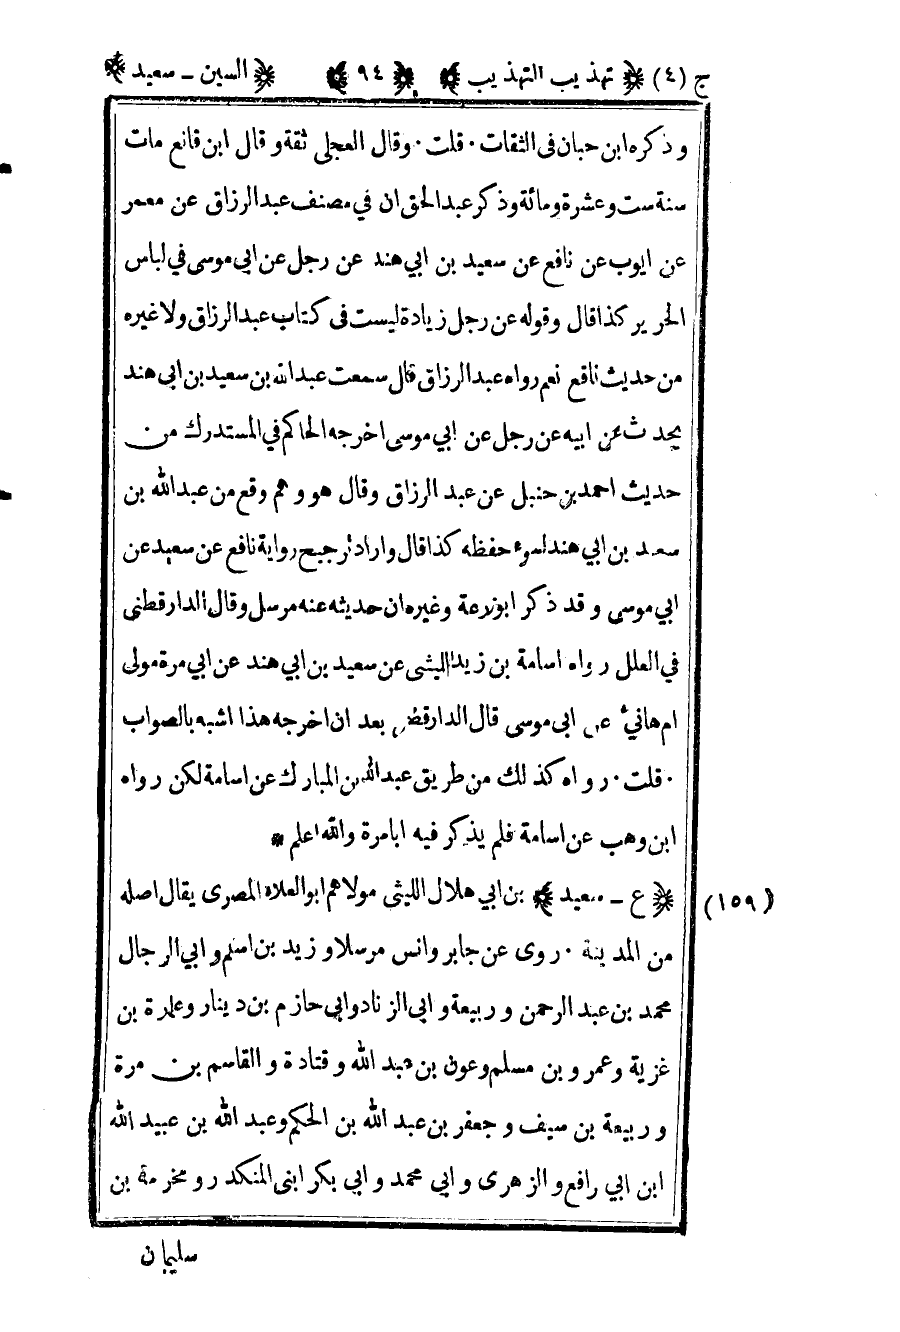 ج (٤) ﴿ تهذيب التهذيب ﴾ ﴿ ٩٤ ﴾ ﴿ السين - سعيد ﴾
وذكره ابن حبان فى الثقات ٠ قلت ٠ وقال العجلى ثقة وقال ابن قانع مات
سنة ست وعشرة ومائة وذكر عبدالحق ان في مصنف عبدالرزاق عن معمر
عن ايوب عن نافع عن سعيد بن ابي هند عن رجل عن ابي موسى في لباس
الحرير كذا قال وقوله عن رجل زيادة ليست فى كتاب عبدالرزاق ولا غيره
من حديث نافع نعم رواه عبدالرزاق قال سمعت عبدالله بن سعيد بن ابي هند
يحدث عن ابيه عن رجل عن ابي موسى اخرجه الحاكم في المستدرك من
حديث احمد بن حنبل عن عبد الرزاق وقال هو وهم وقع من عبدالله بن
سعيد بن ابي هند لسوء حفظه كذا قال واراد ترجيح رواية نافع عن سعيد عن
ابي موسى وقد ذكر ابو زرعة وغيره ان حديثه عنه مرسل وقال الدارقطنى
في العلل رواه اسامة بن زيد الليثى عن سعيد بن ابي هند عن ابي مرة مولى
ام هانيء عن ابى موسى قال الدارقطنى بعد ان اخرجه هذا اشبه بالصواب
٠ قلت ٠ رواه كذلك من طريق عبدالله بن المبارك عن اسامة لكن رواه
ابن وهب عن اسامة فلم يذكر فيه ابا مرة والله اعلم *
(١٥٩) ﴿ ع - سعيد ﴾ بن ابي هلال الليثى مولاهم ابو العلاء المصرى يقال اصله
من المدينة ٠ روى عن جابر وانس مرسلا وزيد بن اسلم وابي الرجال
محمد بن عبد الرحمن وربيعة وابي الزناد وابي حازم بن دينار وعمارة بن
غزية وعمرو بن مسلم وعون بن عبد الله وقتادة والقاسم بن مرة
وربيعة بن سيف وجعفر بن عبد الله بن الحكم وعبد الله بن عبيد الله
ابن ابي رافع والزهرى وابي محمد وابي بكر ابنى المنكدر ومخرمة بن
سليمان